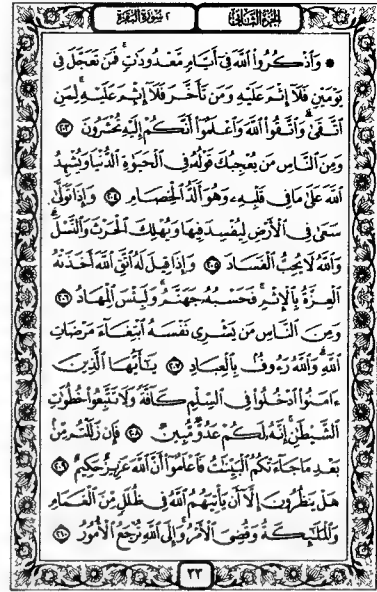 الجزء الثاني
٢ سورة البقرة
۞ وَٱذْكُرُوا۟ ٱللَّهَ فِىٓ أَيَّامٍ مَّعْدُودَٰتٍ ۚ فَمَن تَعَجَّلَ فِى
يَوْمَيْنِ فَلَآ إِثْمَ عَلَيْهِ وَمَن تَأَخَّرَ فَلَآ إِثْمَ عَلَيْهِ ۚ لِمَنِ
ٱتَّقَىٰ ۗ وَٱتَّقُوا۟ ٱللَّهَ وَٱعْلَمُوٓا۟ أَنَّكُمْ إِلَيْهِ تُحْشَرُونَ ٢٠٣
وَمِنَ ٱلنَّاسِ مَن يُعْجِبُكَ قَوْلُهُۥ فِى ٱلْحَيَوٰةِ ٱلدُّنْيَا وَيُشْهِدُ
ٱللَّهَ عَلَىٰ مَا فِى قَلْبِهِۦ وَهُوَ أَلَدُّ ٱلْخِصَامِ ٢٠٤ وَإِذَا تَوَلَّىٰ
سَعَىٰ فِى ٱلْأَرْضِ لِيُفْسِدَ فِيهَا وَيُهْلِكَ ٱلْحَرْثَ وَٱلنَّسْلَ ۗ
وَٱللَّهُ لَا يُحِبُّ ٱلْفَسَادَ ٢٠٥ وَإِذَا قِيلَ لَهُ ٱتَّقِ ٱللَّهَ أَخَذَتْهُ
ٱلْعِزَّةُ بِٱلْإِثْمِ ۚ فَحَسْبُهُۥ جَهَنَّمُ ۚ وَلَبِئْسَ ٱلْمِهَادُ ٢٠٦
وَمِنَ ٱلنَّاسِ مَن يَشْرِى نَفْسَهُ ٱبْتِغَآءَ مَرْضَاتِ
ٱللَّهِ ۗ وَٱللَّهُ رَءُوفٌۢ بِٱلْعِبَادِ ٢٠٧ يَـٰٓأَيُّهَا ٱلَّذِينَ
ءَامَنُوا۟ ٱدْخُلُوا۟ فِى ٱلسِّلْمِ كَآفَّةً وَلَا تَتَّبِعُوا۟ خُطُوَٰتِ
ٱلشَّيْطَـٰنِ ۚ إِنَّهُۥ لَكُمْ عَدُوٌّ مُّبِينٌ ٢٠٨ فَإِن زَلَلْتُم مِّنۢ
بَعْدِ مَا جَآءَتْكُمُ ٱلْبَيِّنَـٰتُ فَٱعْلَمُوٓا۟ أَنَّ ٱللَّهَ عَزِيزٌ حَكِيمٌ ٢٠٩
هَلْ يَنظُرُونَ إِلَّآ أَن يَأْتِيَهُمُ ٱللَّهُ فِى ظُلَلٍ مِّنَ ٱلْغَمَامِ
وَٱلْمَلَـٰٓئِكَةُ وَقُضِىَ ٱلْأَمْرُ ۚ وَإِلَى ٱللَّهِ تُرْجَعُ ٱلْأُمُورُ ٢١٠
٣٣